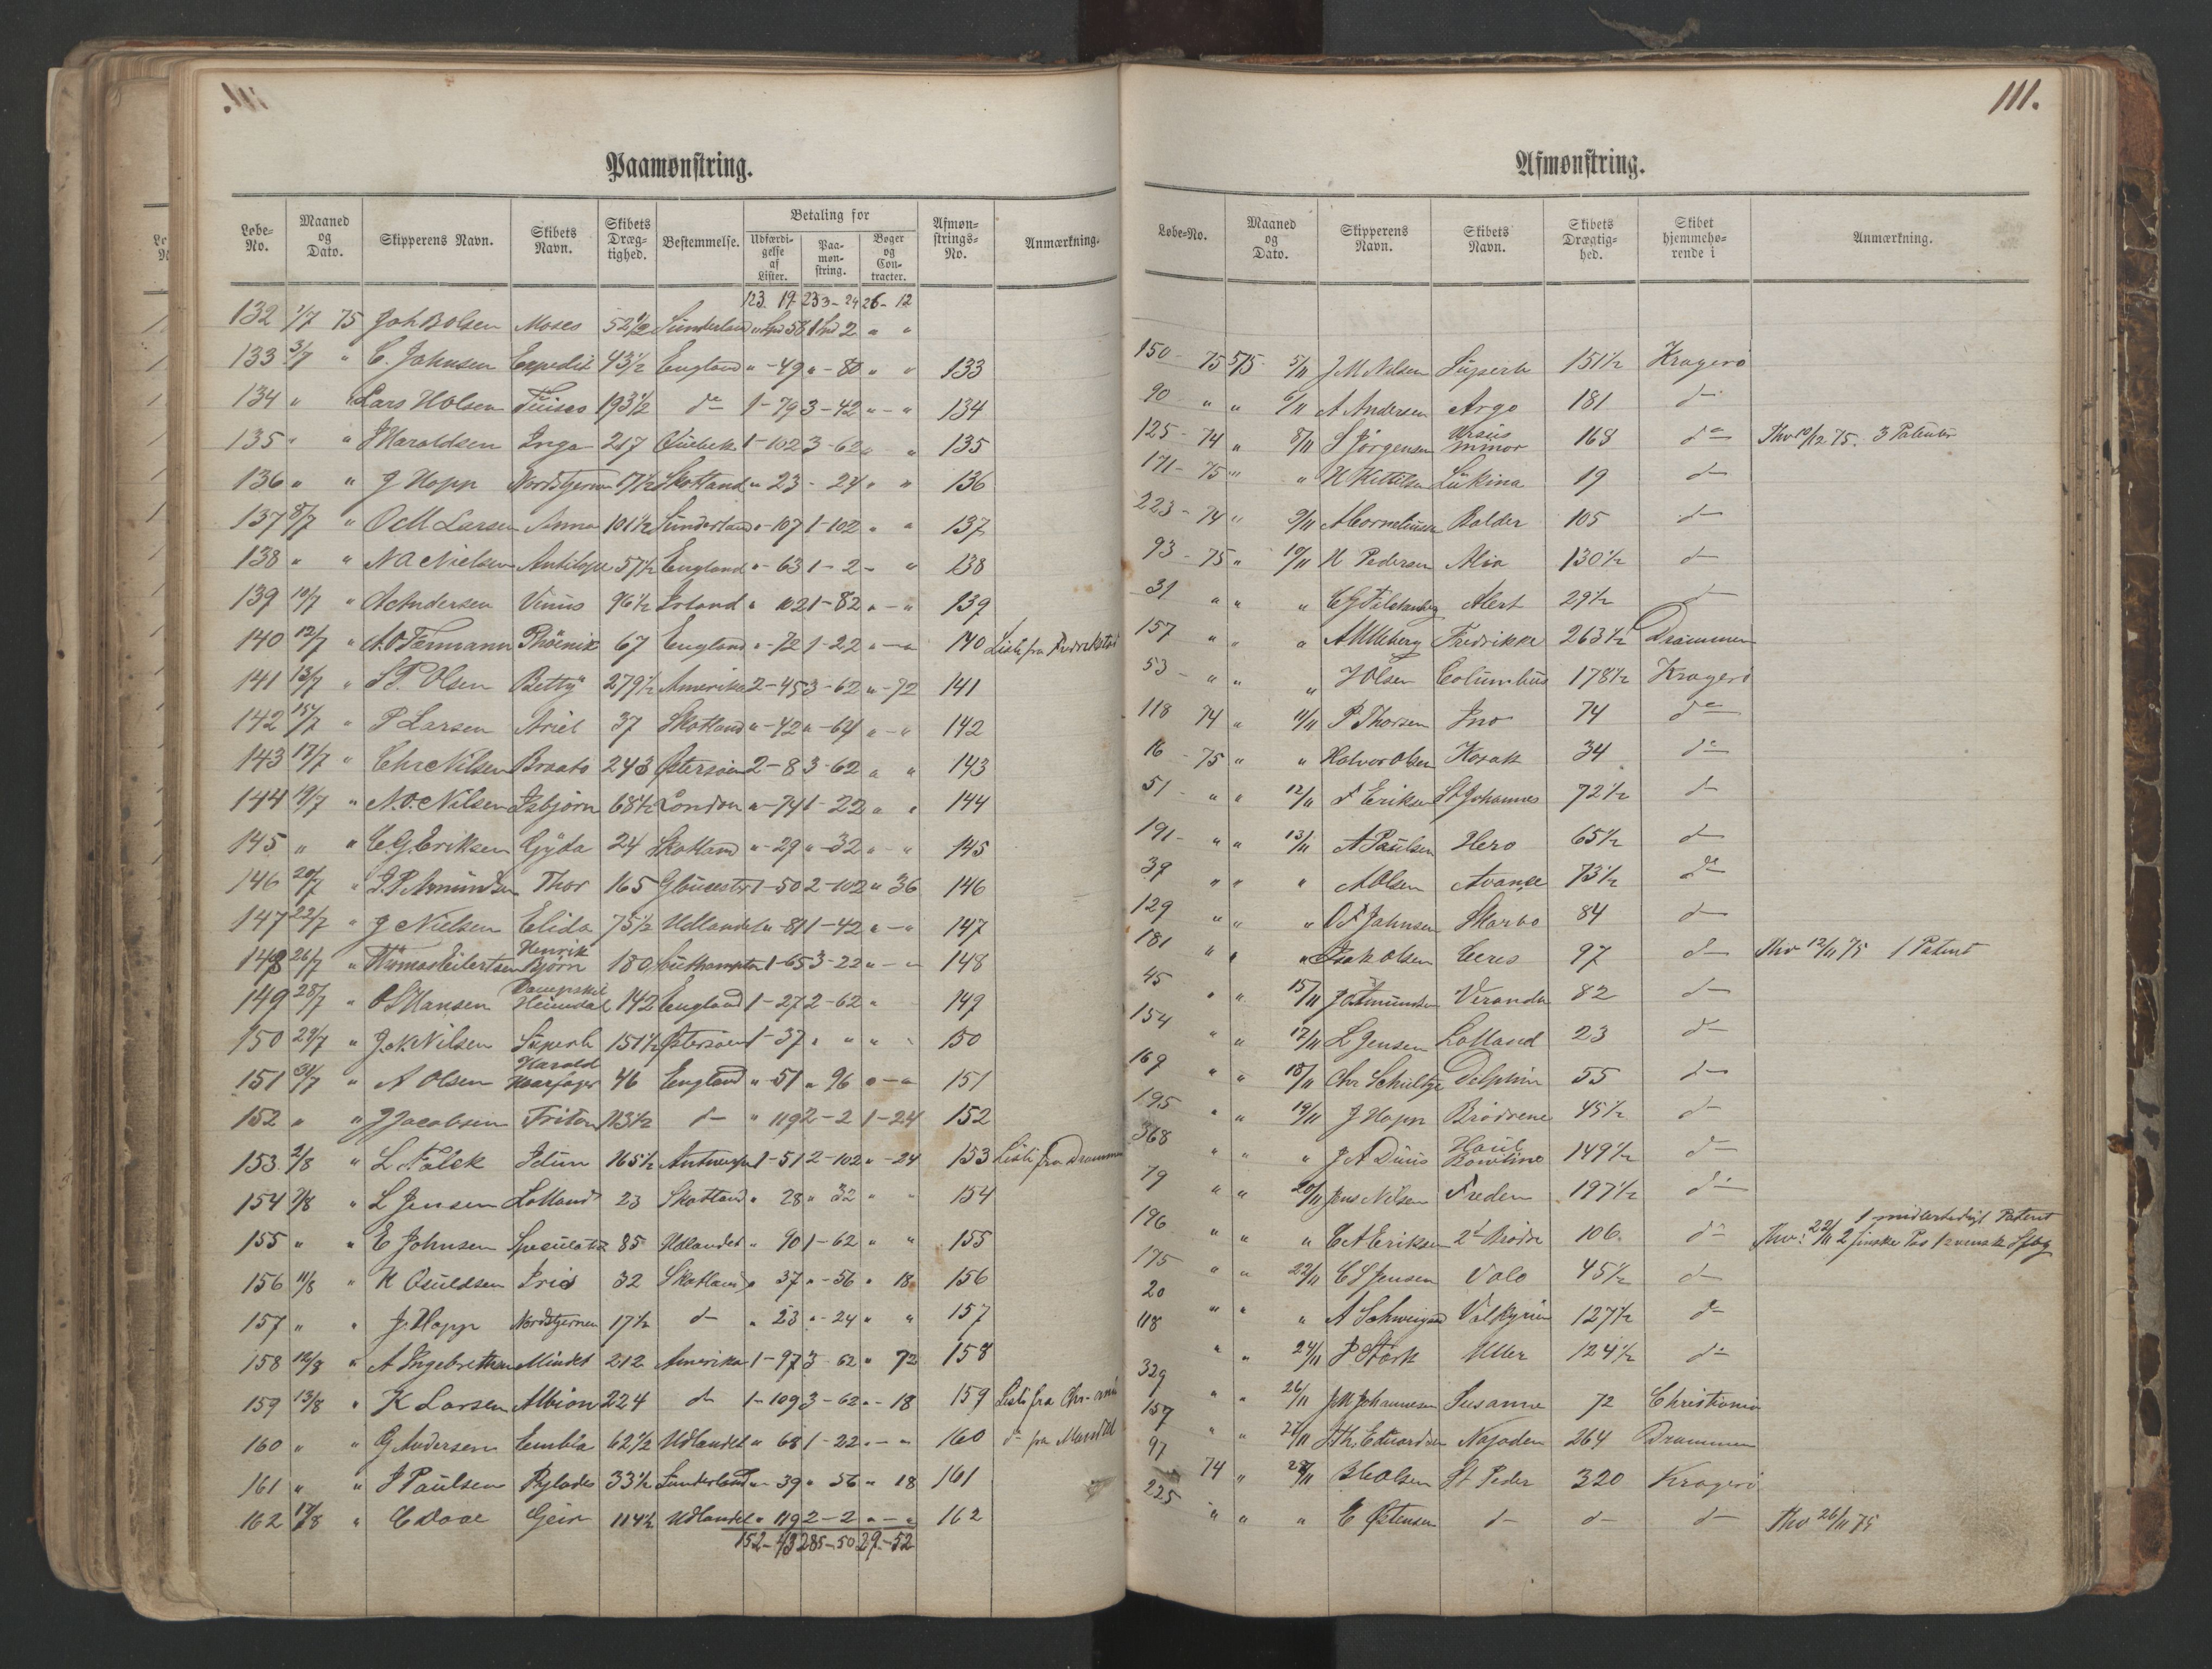 111.
Paamønstring.
Løbe-No. Maaned og Dato. Skipperens Navn. Skibets Navn. Skibets Dræg-tighed. Bestemmelse. Betaling for Udfærdi-gelse af Lister. Paa-møn-string. Bøger og Con-tracter. Afmøn-strings-No. Anmærkning.
123. 19 233-24 26-12
132 1/7 75 Joh Bolsen Moses 52 1/2 Sunderland
133 3/7 " C. Johnsen Expedit 43 1/2 England " - 49 " - 80 " " 133
134 " Lars Holsen Tuisco 193 1/2 do 1-79 3-42 " - " 134
135 " " J Haraldsen Inga 217 Quebek 1-102 3-62 " " 135
136 " " J Hopp Nordstjernen 17 1/2 Skotland " 23 - 24 " " 136
137 8/7 " O M Larsen Anna 101 1/2 Sunderland " - 107 1-102 " " 137
138 " " N A Nielsen Antilope 57 1/2 England " - 63 1-2 - " 138
139 10/7 " A Andersen Venus 96 1/2 Irland " 102 1-82 " - " 139
140 12/7 " A. O Fermann Phönix 67 England " - 72 1-22 " - " 140 Liste fra Fredrikstad
141 13/7 " S P. Olsen Betty 279 1/2 Amerika 2-45 3-62 " - 72 141
142 15/7 " P Larsen Ariel 37 Skotland " - 42 " - 64 " - " 142
143 17/7 " Chr Nilsen Braato 243 Østersøen 2-8 3-62 " " 143
144 19/7 " N. O. Nilsen Isbjørn 68 1/2 London " - 74 1-22 " " 144
145 " " C. G. Eriksen Gyda 24 Skotland " - 29 " - 32 " - " 145
146 20/7 " J. P. Amundsen Thor 165 Glousester 1-50 2-102 " 36 146
147 22/7 " J Nielsen Elida 75 1/2 Udlandet " - 81 1-42 " - " 147
148 26/7 " Thomas Eilertsen Henrik Bjørn 180 Southampton 1-65 3-22 " - " 148
149 28/7 " O S Hansen Dampskib Heimdal 142 England 1-27 2-62 " 149
150 29/7 " J. M. Nilsen Superb 151 1/2 Østersøen 1-37 " " " " 150
151 30/7 " A Olsen Harald Haarfager 46 England " - 51 " 96 " - " 151
152 " " J Jacobsen Triton 113 1/2 do " 119 2-2 1-24 152
153 2/8 " L Falck Idun 165 1/2 Antwerpen 1-51 2-102 " - 24 153 Liste fra Drammen
154 7/8 " L Jensen Lolland 23 Skotland " 28 " 32 " " 154
155 " " E Johnsen 85 Udlandet " 90 1-62 " " 155
156 11/8 " K Osuldsen Iris 32 Skotland " 37 " - 56 " 18 156
157 " " J. Hopp Nordstjernen 17 1/2 do " 23 " - 24 " " 157
158 12/8 " A Ingebrethsen Mindet 212 Amerika 1-97 3 62 " 72 158
159 13/8 " K Larsen Albion 224 do 1-109 3-62 " - 18 159 Liste fra Chr-ania
160 " " G Andersen Embla 62 1/2 Udlandet " 68 1-22 " - " 160 do fra Mandal
161 " " J Paulsen Pylades 33 1/2 Sunderland " - 39 " 56 " 18 161
162 17/8 " C Daae Geir 114 1/2 Udlandet " 119 2-2 " - " 162
152-43 285-50 29-52
Afmønstring.
Løbe-No. Maaned og Dato. Skipperens Navn. Skibets Navn. Skibets Drægtig-hed. Skibet hjemmehø-rende i Anmærkning.
150 - 75 5/11 J M Nilsen Superb 151 1/2 Kragerø
90 " " 6/11 A Andersen Argo 181 do
125 - 74 " 8/11 S Jørgensen Ursus minor 168 do Thv 10/12 75. 3 Patenter
171 - 75 " " K Kittilsen Lukina 19 do
223 - 74 " 9/11 A Corneliusen Balder 105 do
93 - 75 " 10/11 N Pedersen Alia 130 1/2 do
31 " " " Alert 29 1/2 do
157 " " " A Ulleberg Fredrikke 263 1/2 Drammen
53 - " " " J Olsen Columbus 178 1/2 Kragerø
118 74 " 11/11 P Thorsen Ino 74 do
16 - 75 " " Halvor Olsen Kosak 34 do
51 - " " 12/11 F Eriksen St Johannes 72 1/2 do
191 - " " 13/11 A Paulsen Hero 65 1/2 do
39 " " " A Olsen Avance 73 1/2 do
129 " " " O F Jahnsen Skarbo 84 do
181 " " " Isak Olsen Ceres 97 do Thv 12/11 75 1 Patent
45 " " 15/11 J Amundsen Veranda 82 do
154 " " 17/11 L Jensen Lolland 23 do
169 " " 18/11 Chr Schultze Delphin 55 do
195 " " 19/11 J Hopp Brødrene 45 1/2 do
368 " " " J A Duus Haul Bowline 149 1/2 do
79 " " 20/11 Jens Nilsen Freden 197 1/2 do
196 " " " C A Eriksen 2 Brødre 106 do Thv: 22/11 1 midlertidigt Patent 2 finske Pas
175 " " 22/11 C S Jensen Valo 45 1/2 do
20 " " " A Schweigaard Valkyrien 127 1/2 do
118 " " 24/11 P Størk Uller 124 1/2 do
329 " " 26/11 J M Johannesen Susanne 72 Christiania
157 " " 27/11 Joh. Edvardsen Najaden 264 Drammen
97 74 " 28/11 B Holsen St Peder 320 Kragerø
225 " " " E Østensen do do do Thv 26/11 75